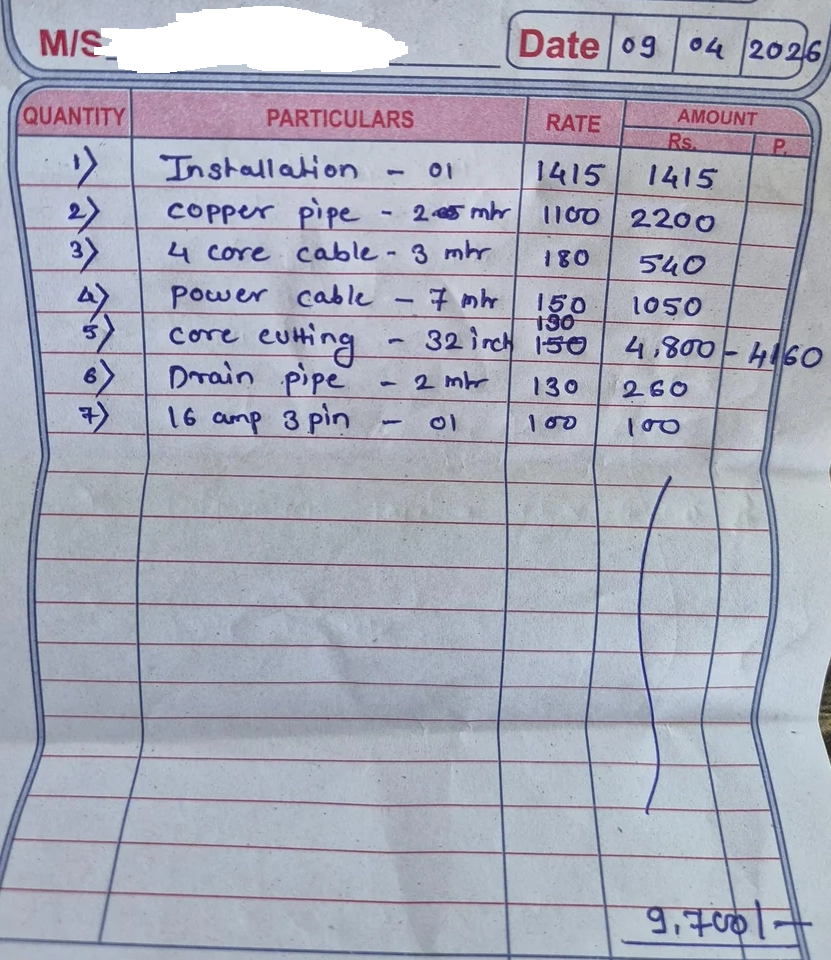 M/S
Date 09 04 2026
QUANTITY PARTICULARS RATE AMOUNT
Rs. P.
1) Installation - 01 1415 1415
2) copper pipe - 2 mtr 1100 2200
3) 4 core cable - 3 mtr 180 540
4) power cable - 7 mtr 150 1050
130
5) core cutting - 32 inch 150 4,800 - 4160
6) Drain pipe - 2 mtr 130 260
7) 16 amp 3 pin - 01 100 100
9,700/-